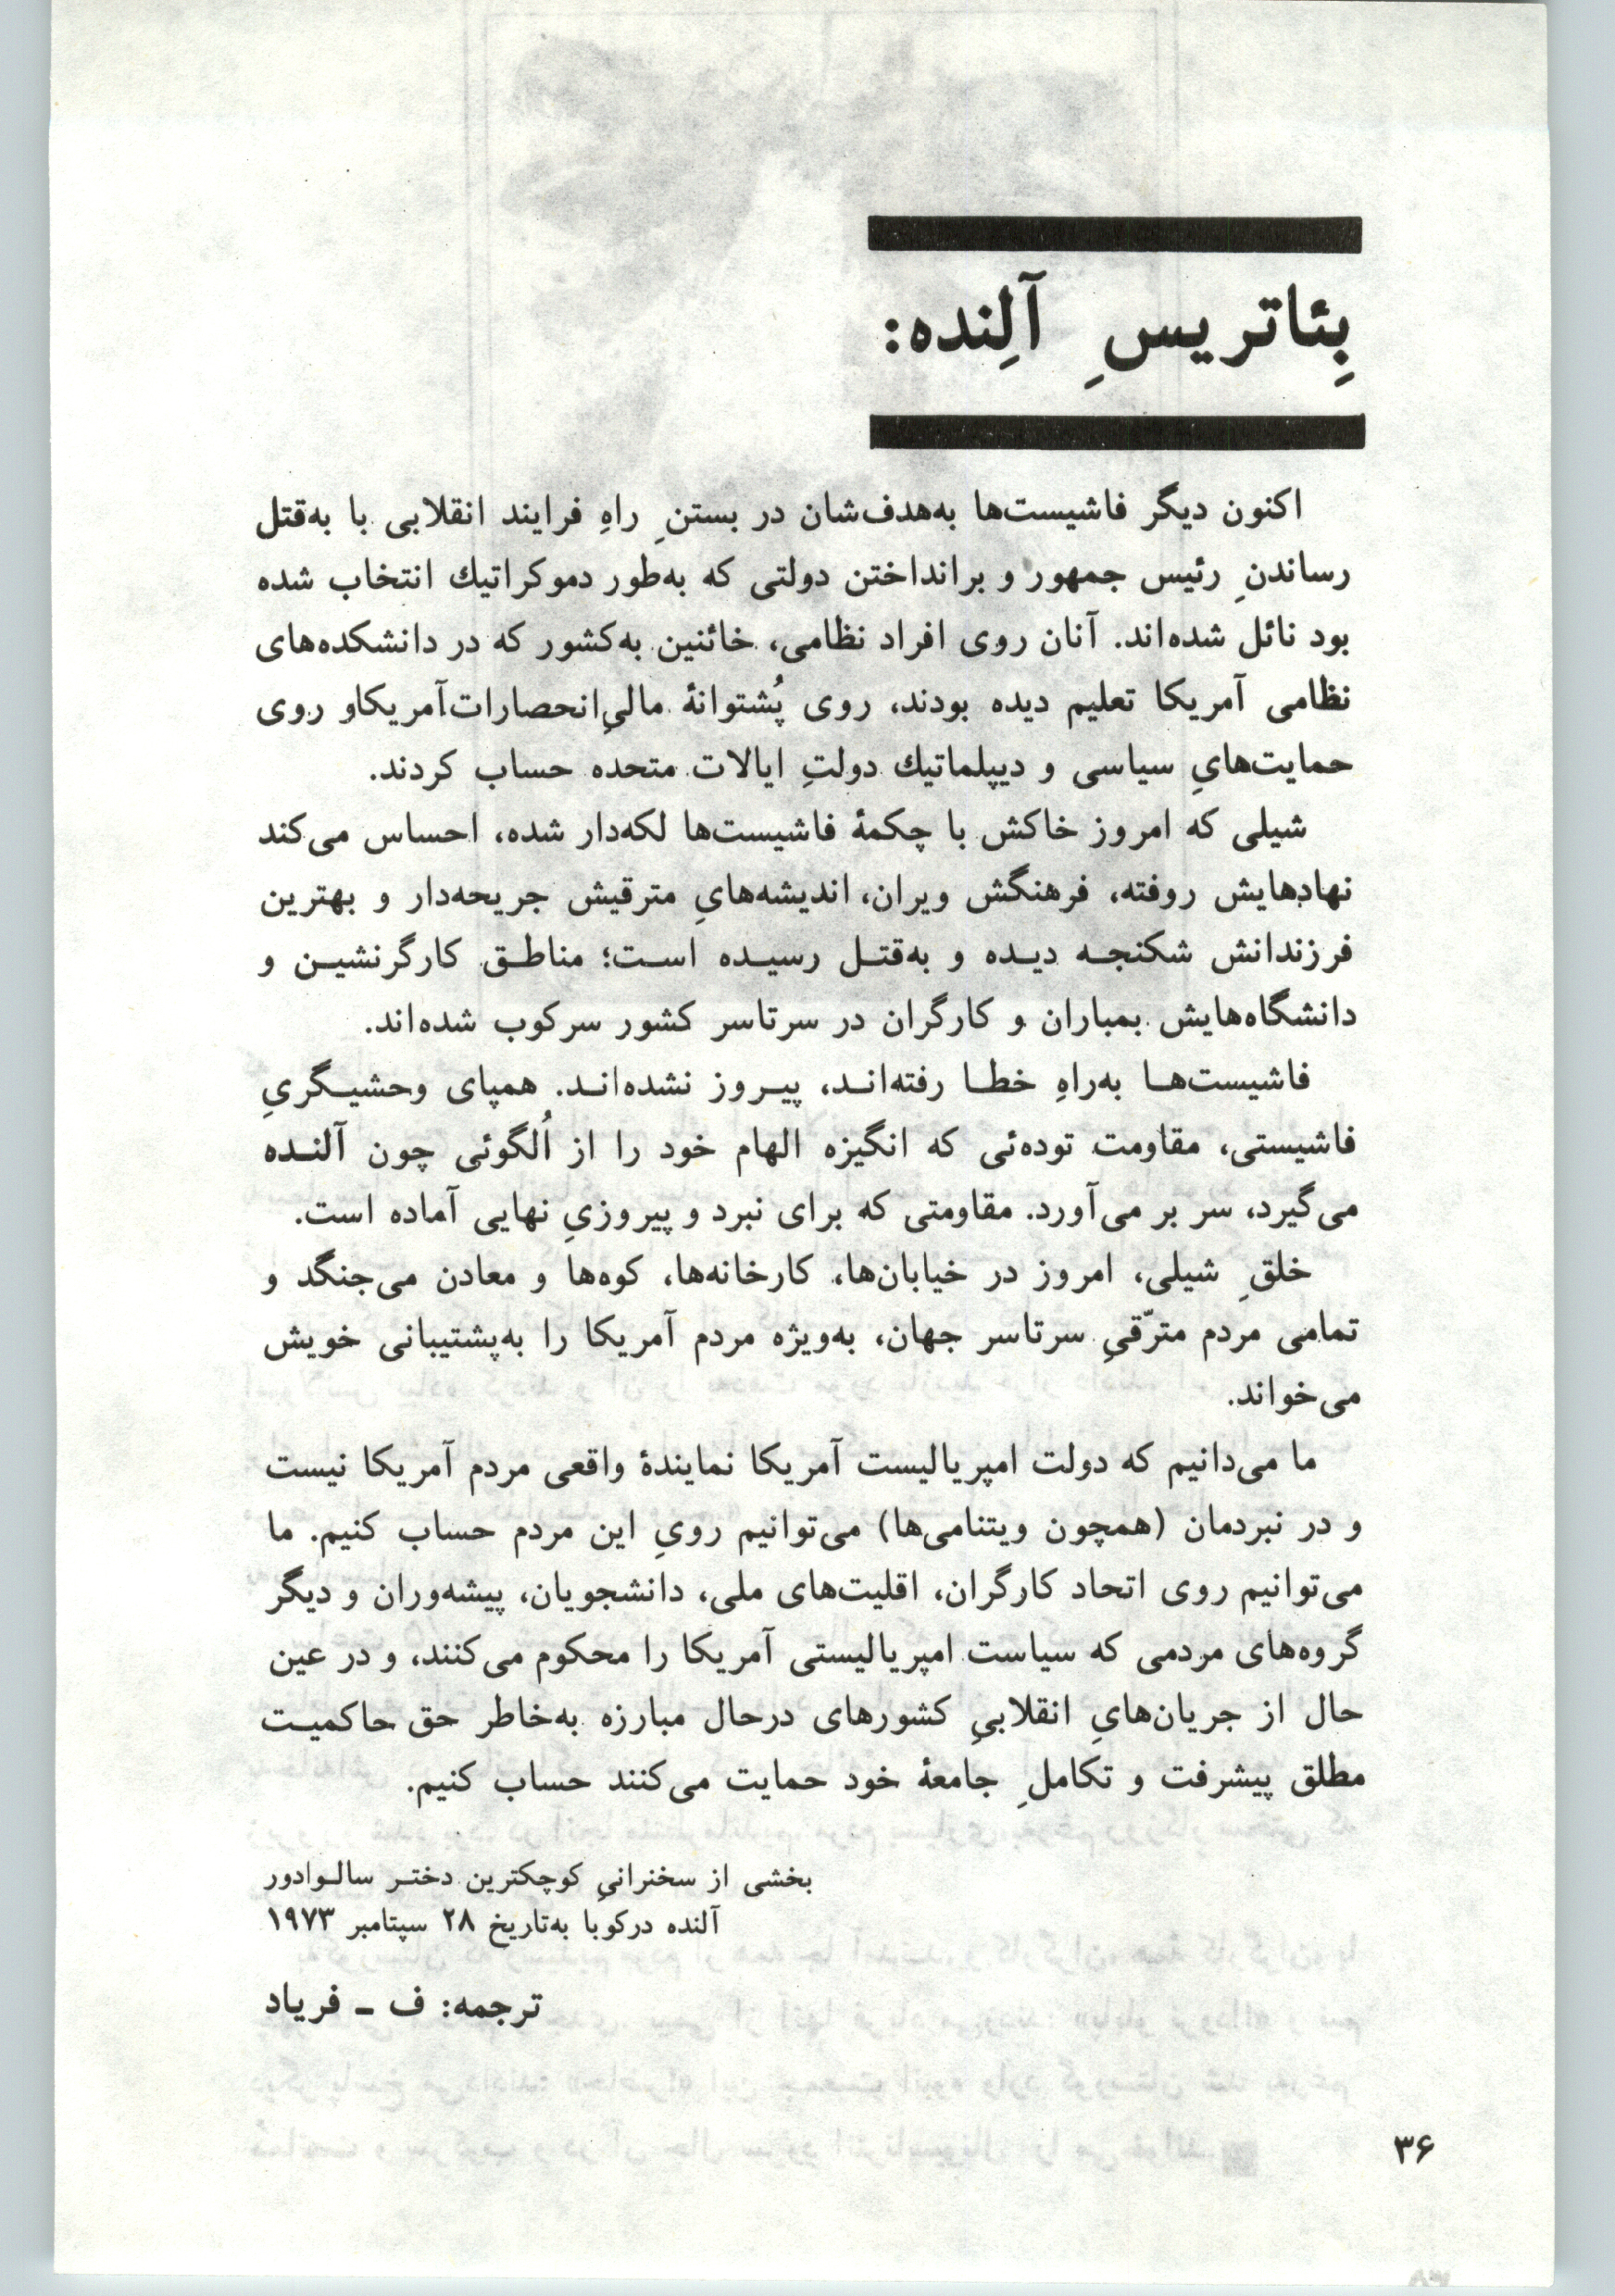 بِئاتریسِ آلِنده:
اکنون دیگر فاشیست‌ها به‌هدف‌شان در بستنِ راهِ فرایند انقلابی با به‌قتل
رساندنِ رئیس جمهور و برانداختن دولتی که به‌طور دموکراتیك انتخاب شده
بود نائل شده‌اند. آنان روی افراد نظامی، خائنین به‌کشور که در دانشکده‌های
نظامی آمریکا تعلیم دیده بودند، روی پُشتوانهٔ مالیِ‌انحصارات‌آمریکاو روی
حمایت‌هایِ سیاسی و دیپلماتیك دولتِ ایالات متحده حساب کردند.
شیلی که امروز خاکش با چکمهٔ فاشیست‌ها لکه‌دار شده، احساس می‌کند
نهادهایش روفته، فرهنگش ویران، اندیشه‌هایِ مترقیش جریحه‌دار و بهترین
فرزندانش شکنجـه دیـده و به‌قتـل رسیـده اسـت؛ مناطـق کارگرنشیـن و
دانشگاه‌هایش بمباران و کارگران در سرتاسر کشور سرکوب شده‌اند.
فاشیست‌هـا به‌راهِ خطـا رفته‌انـد، پیـروز نشده‌انـد. همپای وحشیـگریِ
فاشیستی، مقاومت توده‌ئی که انگیزه الهام خود را از اُلگوئی چون آلنـده
می‌گیرد، سر بر می‌آورد. مقاومتی که برای نبرد و پیروزیِ نهایی آماده است.
خلقِ شیلی، امروز در خیابان‌ها، کارخانه‌ها، کوه‌ها و معادن می‌جنگد و
تمامی مردم مترّقیِ سرتاسر جهان، به‌ویژه مردم آمریکا را به‌پشتیبانی خویش
می‌خواند.
ما می‌دانیم که دولت امپریالیست آمریکا نمایندهٔ واقعی مردم آمریکا نیست
و در نبردمان (همچون ویتنامی‌ها) می‌توانیم رویِ این مردم حساب کنیم. ما
می‌توانیم روی اتحاد کارگران، اقلیت‌های ملی، دانشجویان، پیشه‌وران و دیگر
گروه‌های مردمی که سیاست امپریالیستی آمریکا را محکوم می‌کنند، و در عین
حال از جریان‌هایِ انقلابیِ کشورهای درحال مبارزه به‌خاطر حق حاکمیـت
مطلق پیشرفت و تکاملِ جامعهٔ خود حمایت می‌کنند حساب کنیم.
بخشی از سخنرانیِ کوچکترین دختـر سالـوادور
آلنده درکوبا به‌تاریخ ۲۸ سپتامبر ۱۹۷۳
ترجمه: ف ـ فریاد
۳۶